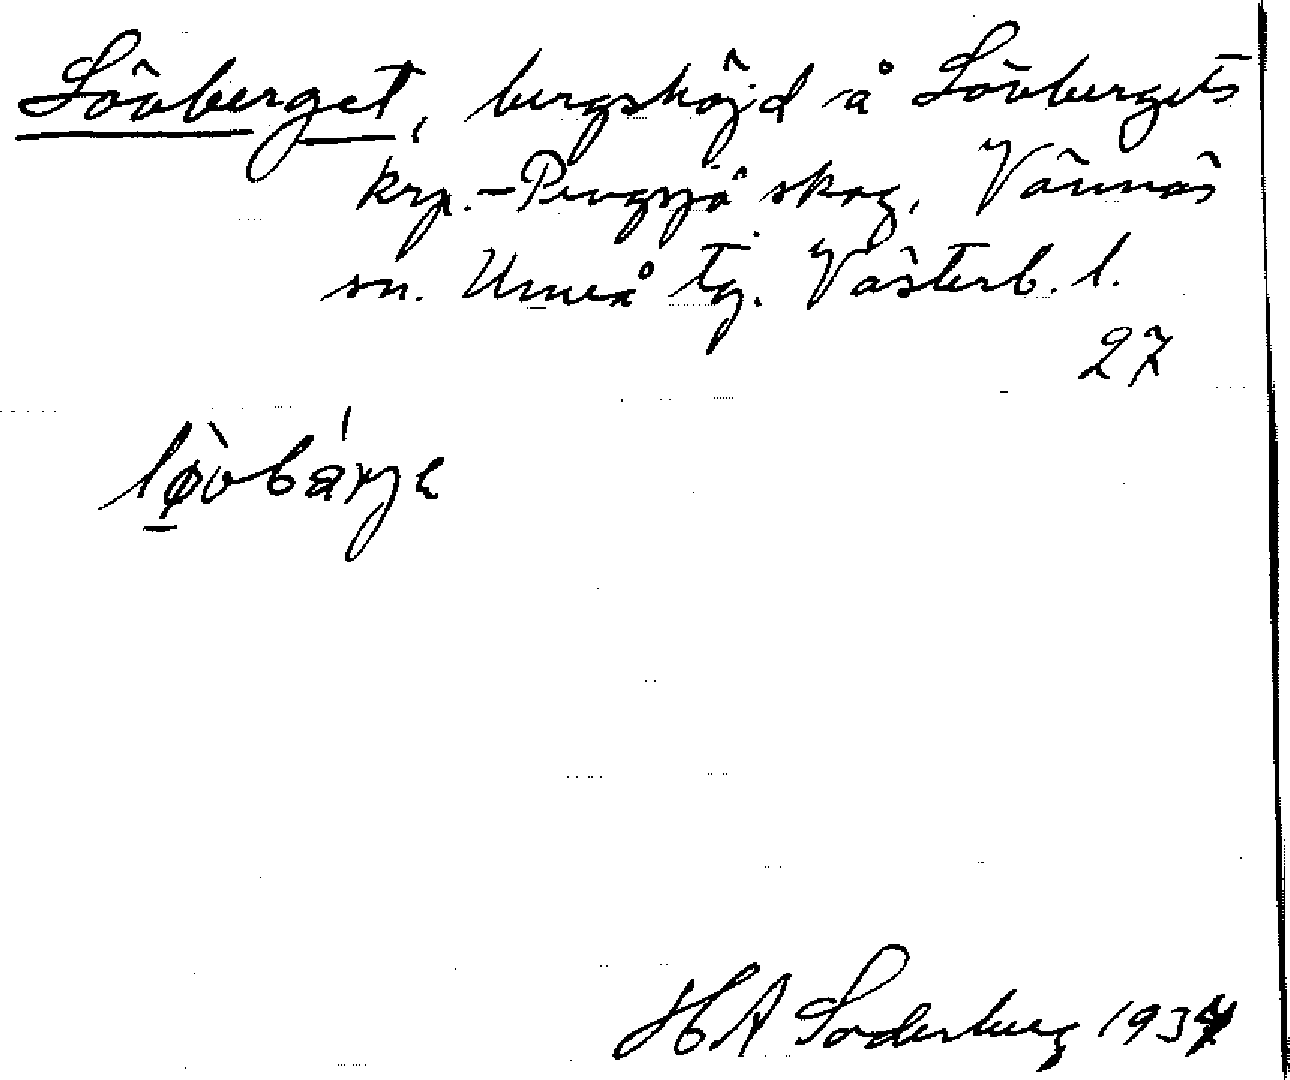 Lövberget, bergshöjd å Lövbergets
krp.-Pengsjö skog, Vännäs
sn. Umeå tg. Västerb. l.
27
lø̠̀vbárje
H A Söderberg 1934